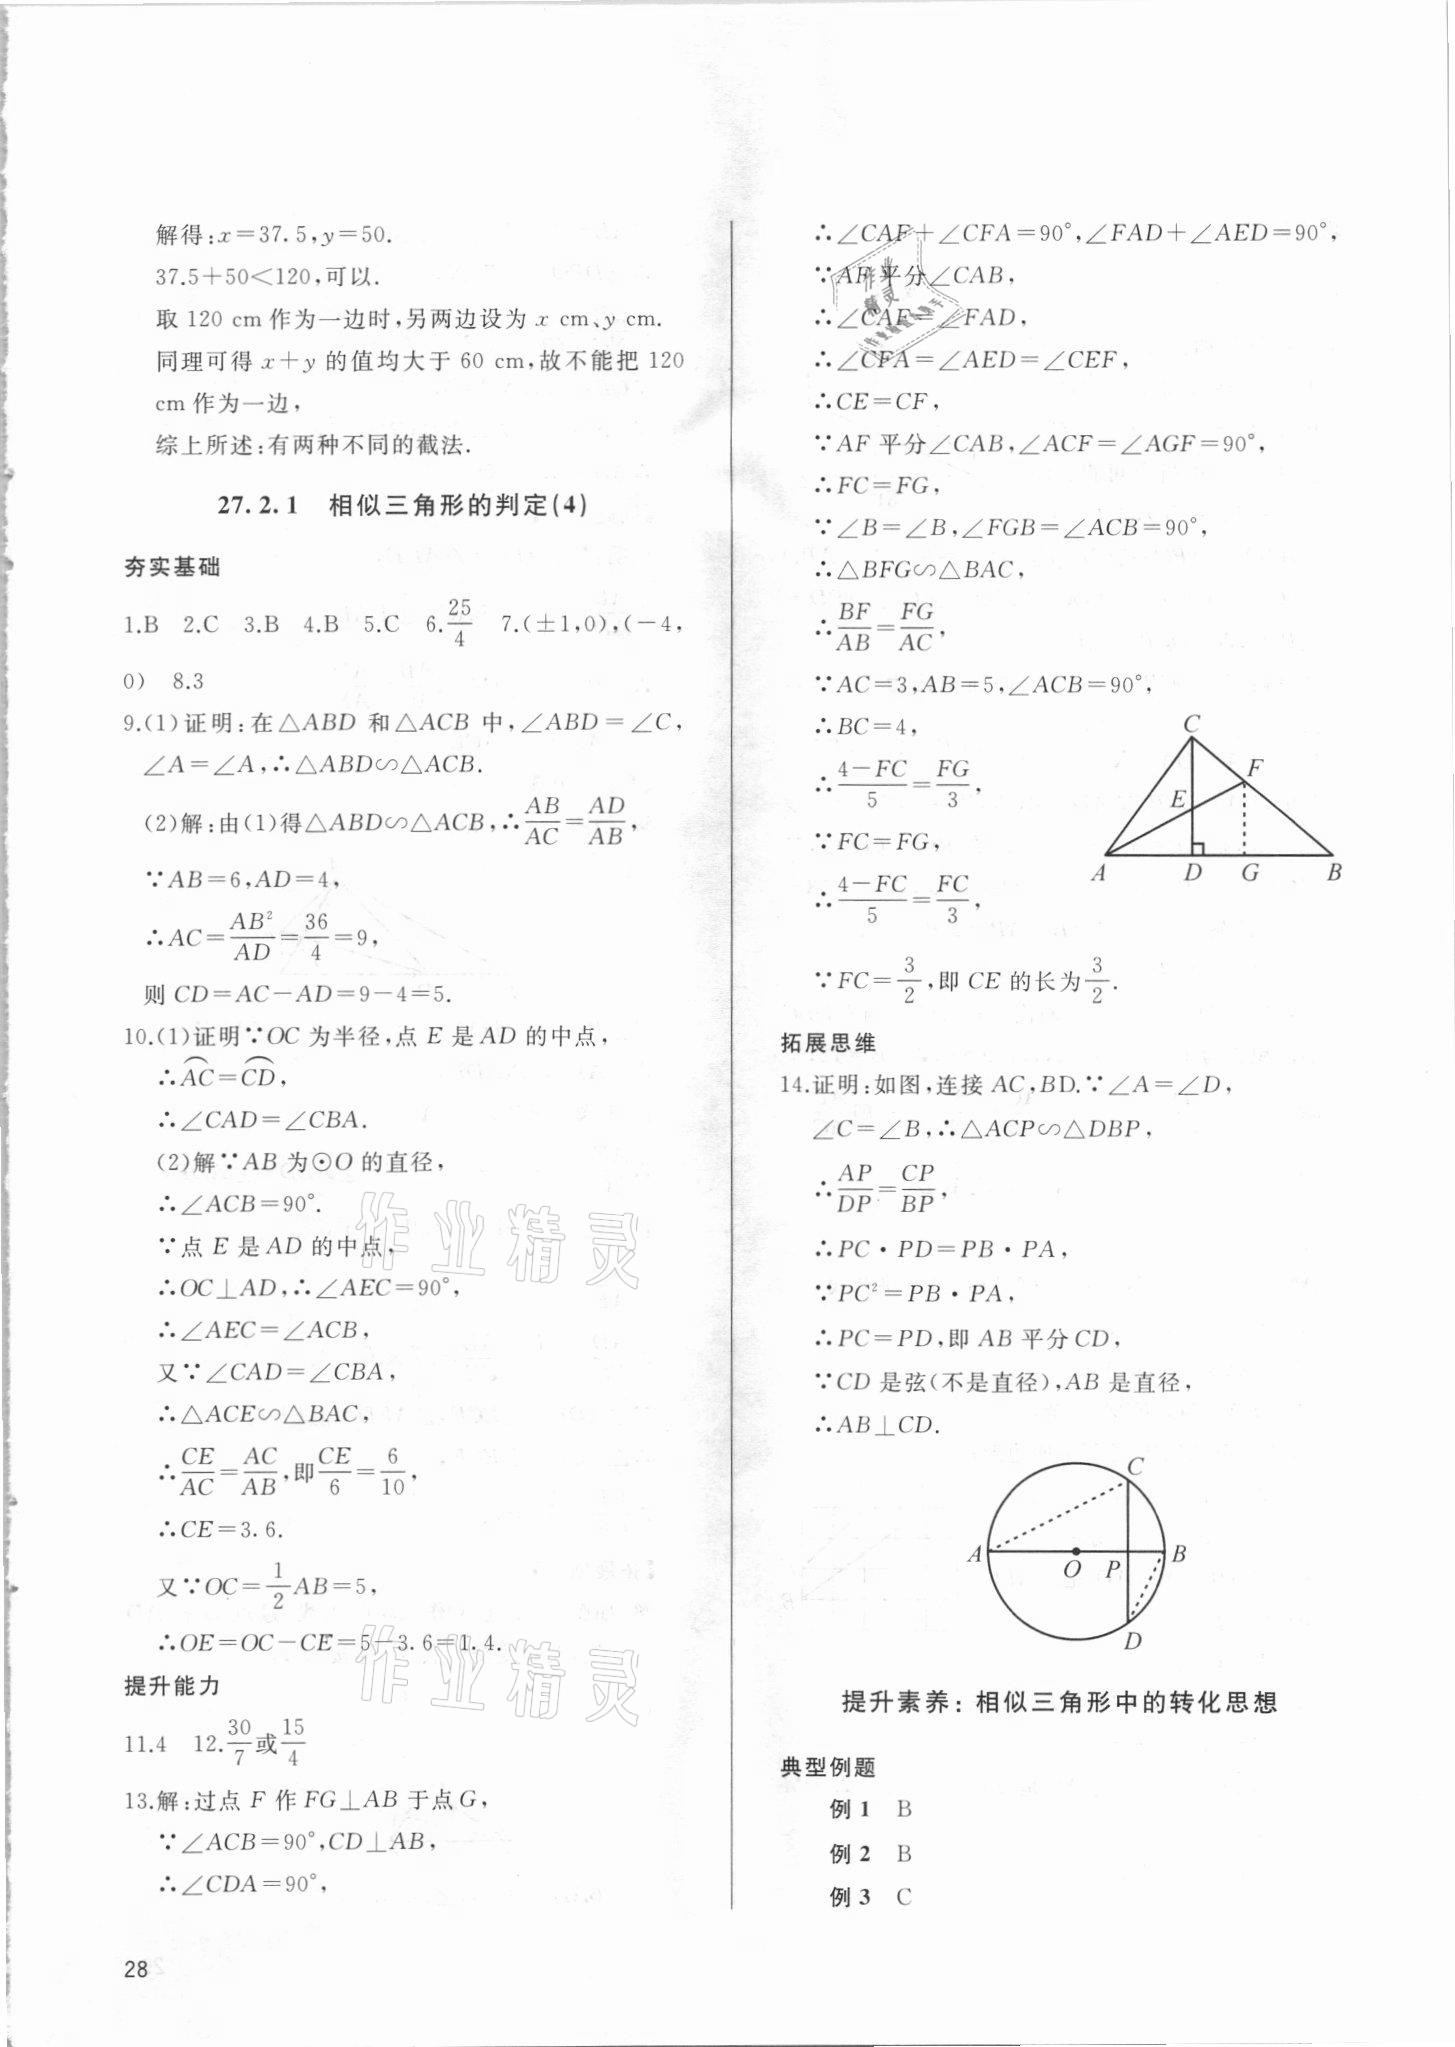 解得:x=37.5,y=50.
37.5+50<120,可以.
取 120 cm 作为一边时,另两边设为 x cm、y cm.
同理可得 x+y 的值均大于 60 cm,故不能把 120
cm 作为一边,
综上所述:有两种不同的截法.
27.2.1 相似三角形的判定(4)
夯实基础
1.B 2.C 3.B 4.B 5.C 6.25/4 7.(±1,0),(-4,
0) 8.3
9.(1)证明:在△ABD 和△ACB 中,∠ABD=∠C,
∠A=∠A,∴△ABD∽△ACB.
(2)解:由(1)得△ABD∽△ACB,∴AB/AC=AD/AB,
∵AB=6,AD=4,
∴AC=AB²/AD=36/4=9,
则 CD=AC-AD=9-4=5.
10.(1)证明∵OC 为半径,点 E 是 AD 的中点,
∴⌒AC=⌒CD,
∴∠CAD=∠CBA.
(2)解∵AB 为⊙O 的直径,
∴∠ACB=90°.
∵点 E 是 AD 的中点,
∴OC⊥AD,∴∠AEC=90°,
∴∠AEC=∠ACB,
又∵∠CAD=∠CBA,
∴△ACE∽△BAC,
∴CE/AC=AC/AB,即CE/6=6/10,
∴CE=3.6.
又∵OC=1/2AB=5,
∴OE=OC-CE=5-3.6=1.4.
提升能力
11.4 12.30/7或15/4
13.解:过点 F 作 FG⊥AB 于点 G,
∵∠ACB=90°,CD⊥AB,
∴∠CDA=90°,
28
∴∠CAF+∠CFA=90°,∠FAD+∠AED=90°,
∵AF 平分∠CAB,
∴∠CAF=∠FAD,
∴∠CFA=∠AED=∠CEF,
∴CE=CF,
∵AF 平分∠CAB,∠ACF=∠AGF=90°,
∴FC=FG,
∵∠B=∠B,∠FGB=∠ACB=90°,
∴△BFG∽△BAC,
∴BF/AB=FG/AC,
∵AC=3,AB=5,∠ACB=90°,
∴BC=4,
∴4-FC/5=FG/3,
∵FC=FG,
∴4-FC/5=FC/3,
∵FC=3/2,即 CE 的长为3/2.
C
F
E
A D G B
拓展思维
14.证明:如图,连接 AC,BD.∵∠A=∠D,
∠C=∠B,∴△ACP∽△DBP,
∴AP/DP=CP/BP,
∴PC·PD=PB·PA,
∵PC²=PB·PA,
∴PC=PD,即 AB 平分 CD,
∵CD 是弦(不是直径),AB 是直径,
∴AB⊥CD.
C
A O P B
D
提升素养:相似三角形中的转化思想
典型例题
例 1 B
例 2 B
例 3 C
作业精灵
作业精灵
作业
精灵